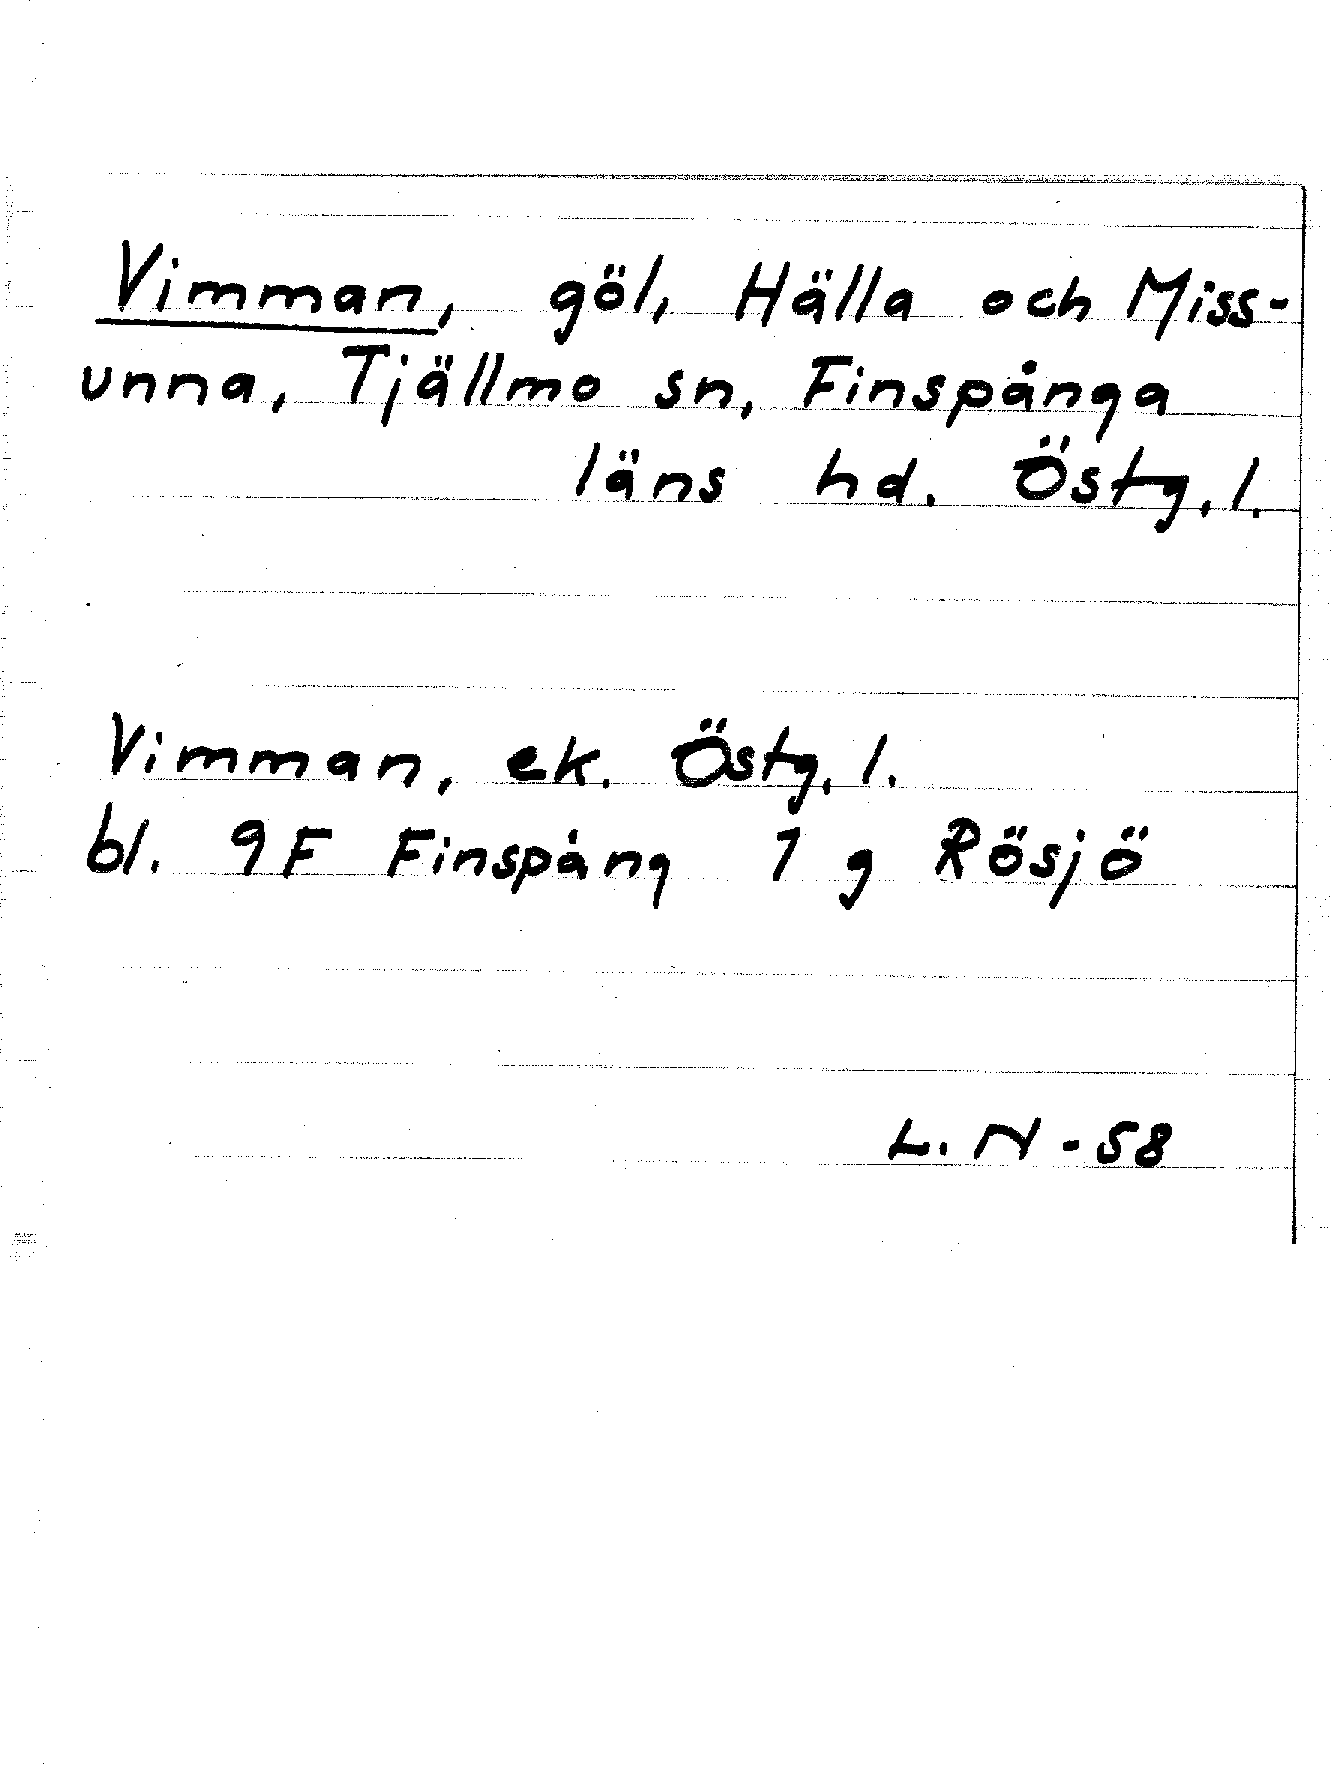 Vimman, göl, Hälla och Miss-
unna, Tjällmo sn, Finspånga
läns hd. Östg. l.
Vimman, ek. Östg. l.
bl. 9F Finspång 1 g Rösjö
L. N - 58